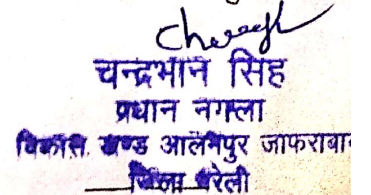 चन्द्रभान सिंह
प्रधान नगला
विकास खण्ड आलमपुर जाफराबा
जिला बरेली